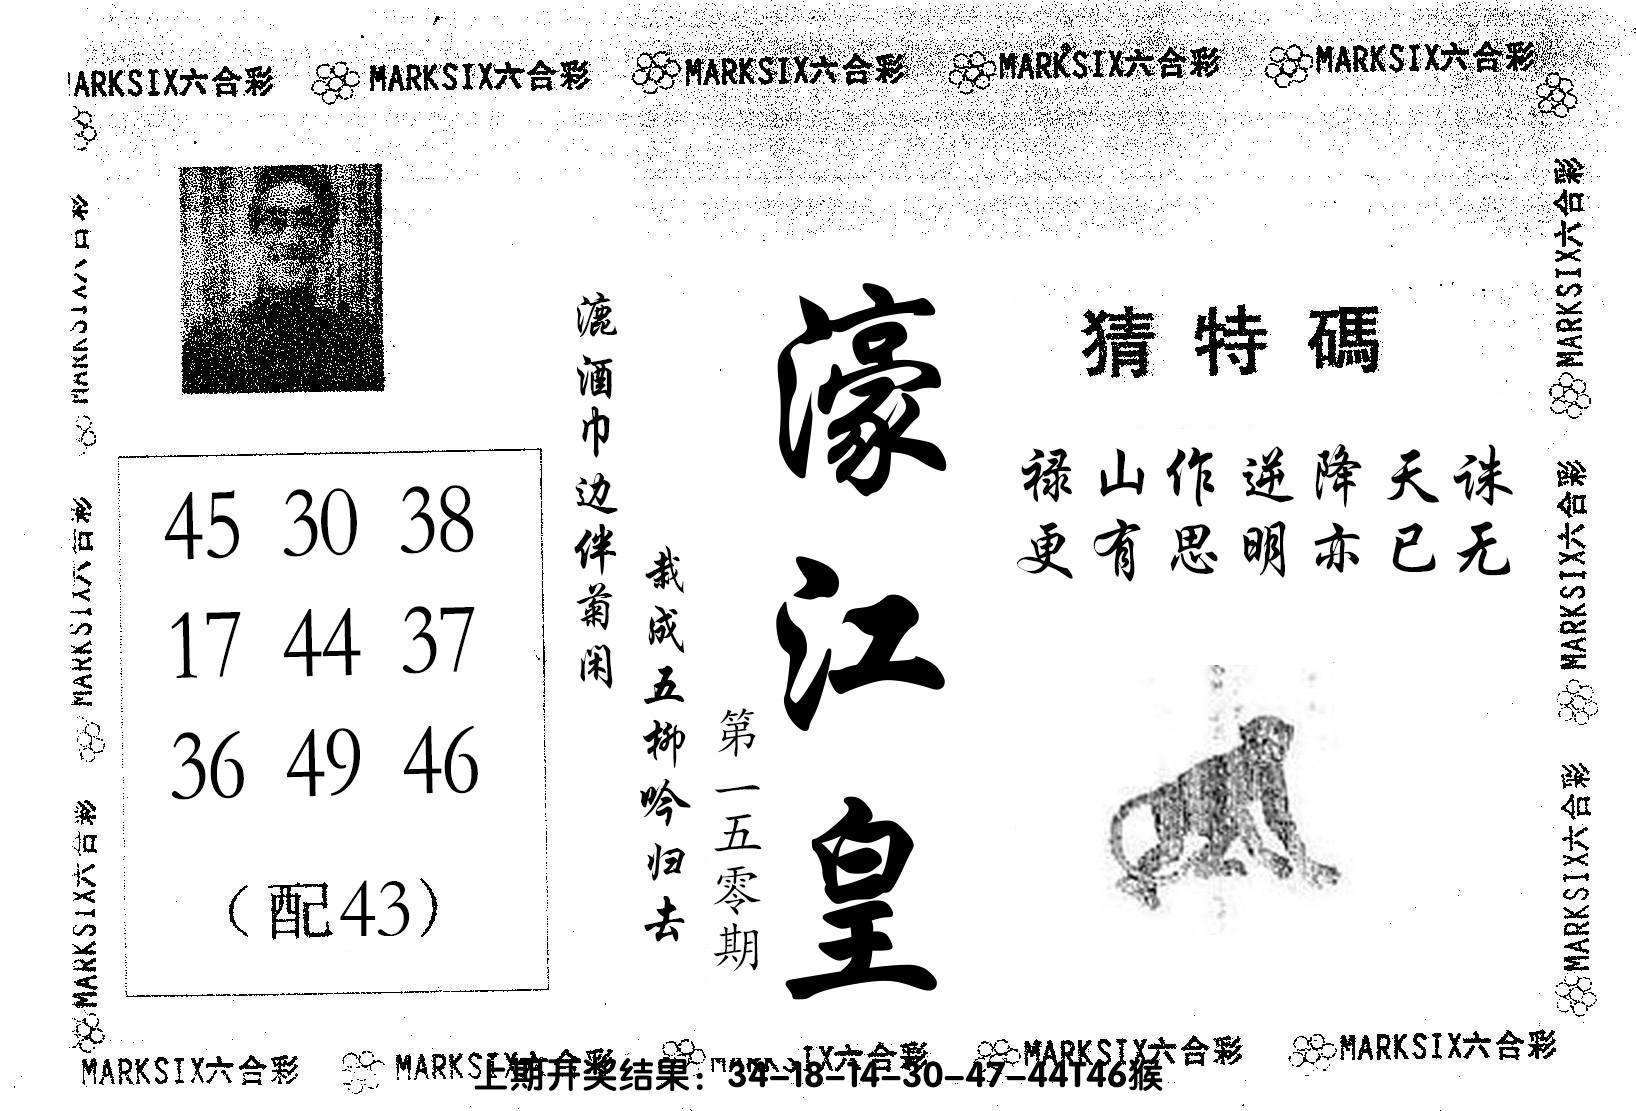 MARKSIX六合彩 MARKSIX六合彩 MARKSIX六合彩 MARKSIX六合彩 MARKSIX六合彩
MARKSIX六合彩
MARKSIX六合彩
MARKSIX六合彩
45 30 38
17 44 37
36 49 46
（配43）
漉酒巾边伴菊闲
栽成五柳吟归去
第一五零期
濠江皇
猜特碼
禄山作逆降天诛
更有思明亦已无
MARKSIX六合彩
MARKSIX六合彩
MARKSIX六合彩
MARKSIX六合彩 MARKSIX六合彩 MARKSIX六合彩 MARKSIX六合彩 MARKSIX六合彩
上期开奖结果：34-18-14-30-47-44T46猴